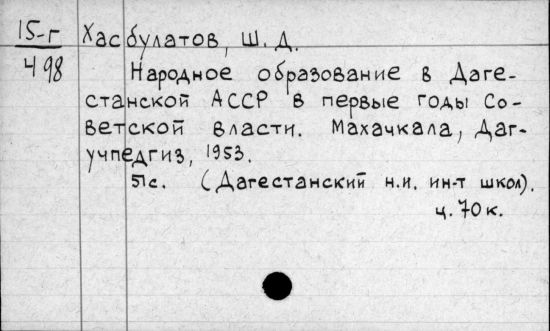 15-г
498
Хасбулатов, Ш. Д.
Народное образование в Даге-
станской АССР в первые годы Со-
ветской власти. Махачкала, Даг-
учпедгиз, 1953.
51с. (Дагестанский н.и. ин-т школ).
ц. 70 к.